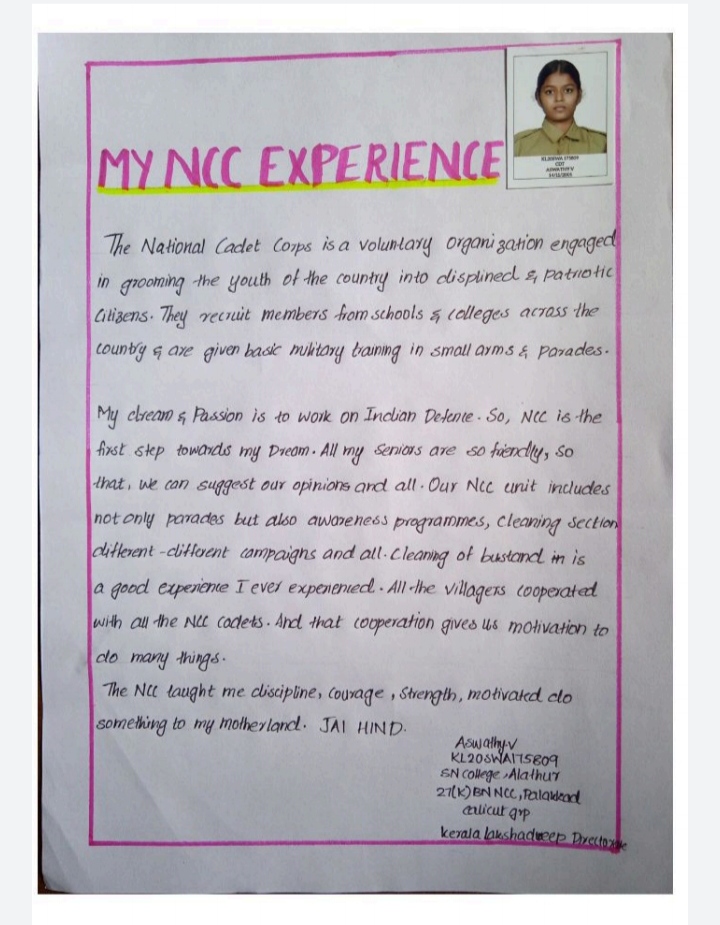 MY NCC EXPERIENCE
CDT
ASWATHY V
The National Cadet Corps is a voluntary organization engaged
in grooming the youth of the country into displined & patriotic
citizens. They recruit members from schools & colleges across the
country & are given basic military training in small arms & parades.
My dream & Passion is to work on Indian Defence. So, NCC is the
first step towards my Dream. All my seniors are so friendly, so
that, we can suggest our opinions and all. Our NCC unit includes
not only parades but also awareness programmes, cleaning section
different-different campaigns and all. Cleaning of bustand in is
a good experience I ever experienced. All the villagers cooperated
with all the NCC cadets. And that cooperation gives us motivation to
do many things.
The NCC taught me discipline, courage, strength, motivated do
something to my motherland. JAI HIND.
Aswathy.V
KL20SWA175809
SN college, Alathur
27(K)BN NCC, Palakkad
calicut grp
kerala lakshadweep Directorate